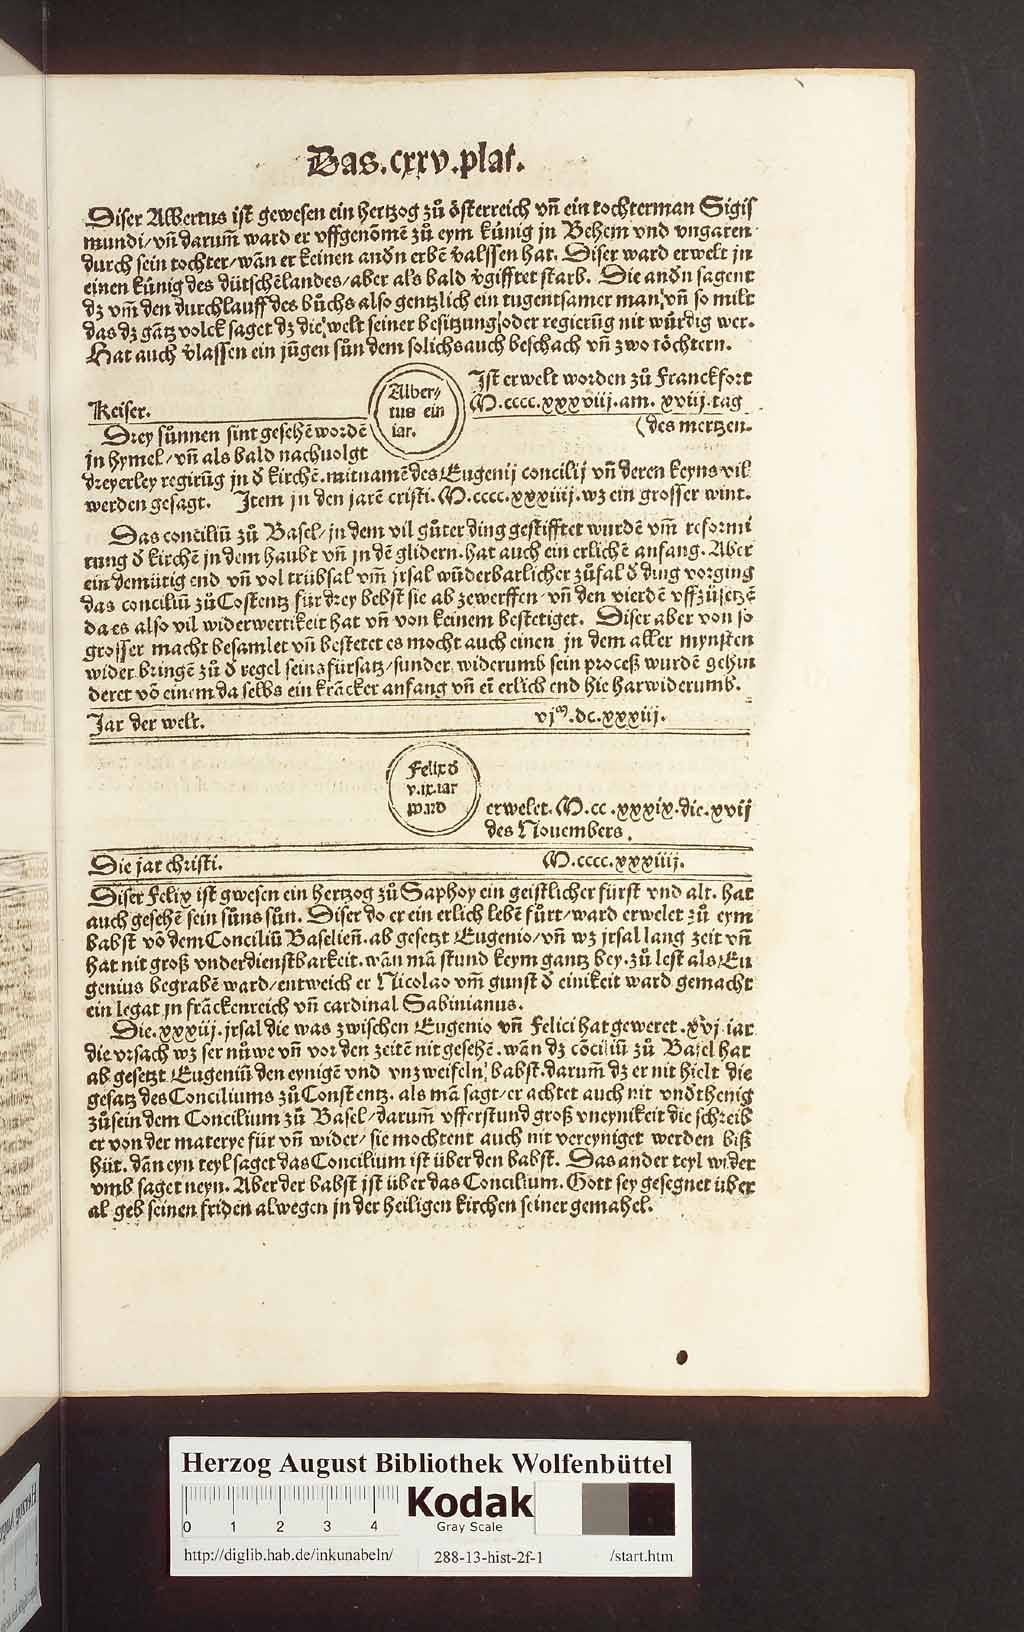 Das.cxxv.plat.
Diser Albertus ist gewesen ein hertzog zů österreich vñ ein tochterman Sigis
mundi/vñ darum̄ ward er vffgenōmē zů eym künig jn Behem vnd vngaren
durch sein tochter/wān er keinen andn erbē v̄alssen hat. Diser ward erwelt jn
einen künig des dütschēlandes/aber als bald v̄gifftet starb. Die andn sagent
dz vm̄ den durchlauff des bůchs also gentzlich ein tugentsamer man, vñ so milt
das dz gātz volck saget dz die welt seiner besitzung oder regierūg nit würdig wer.
Hat auch v̄lassen ein jūgen sůn dem solichs auch beschach vñ zwo töchtern.
Keiser.
Alber/
tus ein
iar.
Jst erwelt worden zů Franckfort
M.cccc.xxxviij.am. xviij.tag
(des mertzen.
Drey sůnnen sint gesehē wordē
jn hymel/vñ als bald nachuolgt
dreyerley regirūg jn d̄ kirchē.mit namē des Eugenij concilij vñ deren keyns vil
werden gesagt. Jtem jn den jarē cristi.M.cccc.xxxiiij.wz ein grosser wint.
Das conciliū zů Basel/jn dem vil gůter ding gestifftet wurdē vm̄ reformi
rung d̄ kirchē jn dem haubt vñ jn dē glidern.hat auch ein erlichē anfang. Aber
ein demütig end vñ vol trübsal vm̄ jrsal wūderbarlicher zůfal d̄ ding vorging
das conciliū zů Costentz für drey bebst sie ab zewerffen/vñ den vierdē vffzůsetzē
da es also vil widerwertikeit hat vñ von keinem bestetiget. Diser aber von so
grosser macht besamlet vñ bestetet es mocht auch einen jn dem aller mynsten
wider bringē zů d̄ regel seins fürsatz/sunder widerumb sein proceß wurdē gehin
deret vō einem da selbs ein krācker anfang vñ ei erlich end hie harwiderumb.
Jar der welt. vjm.dc.xxxiij.
Felix d̄
v.ix.iar
erwelet.M.cc.xxxix.die.xvij
des Nouembers.
Die jar christi. M.cccc.xxxiiij.
Diser Felix ist gwesen ein hertzog zů Saphoy ein geistlicher fürst vnd alt. hat
auch gesehē sein sůns sůn. Diser do er ein erlich lebē fůrt/ward erwelet zů eym
babst vō dem Conciliū Basilieñ.ab gesetzt Eugenio/vñ wz jrsal lang zeit vñ
hat nit groß vnderdienstbarkeit.wān mā stund keym gantz bey.zů lest als Eu
genius begrabē ward/entweich er Nicolao vm̄ gunst d̄ einikeit ward gemacht
ein legat jn frāckenreich vñ cardinal Sabinianus.
Die.xxxiij.jrsal die was zwischen Eugenio vñ Felici hat geweret.xvj.iar
die vrsach wz ser nůwe vñ vor den zeitē nit gesehē.wān dz cōciliū zů Basel hat
ab gesetzt Eugeniū den eynigē vnd vnzweifeln babst.darum̄ dz er nit hielt die
gesatz des Conciliums zů Constentz.als mā sagt/er achtet auch nit vnd̄thenig
zů sein dem Concilium zů Basel/darum̄ vfferstund groß vneynikeit die schreib
er von der materye für vñ wider/sie mochtent auch nit vereyniget werden biß
hüt.dān eyn teyl saget das Concilium ist über den babst. Das ander teyl wider
vmb saget neyn. Aber der babst ist über das Concilium. Gott sey gesegnet über
al geb seinen friden alwegen jn der heiligen kirchen seiner gemahel.
Herzog August Bibliothek Wolfenbüttel
0 1 2 3 4
Kodak
Gray Scale
http://diglib.hab.de/inkunabeln/ 288-13-hist-2f-1 /start.htm